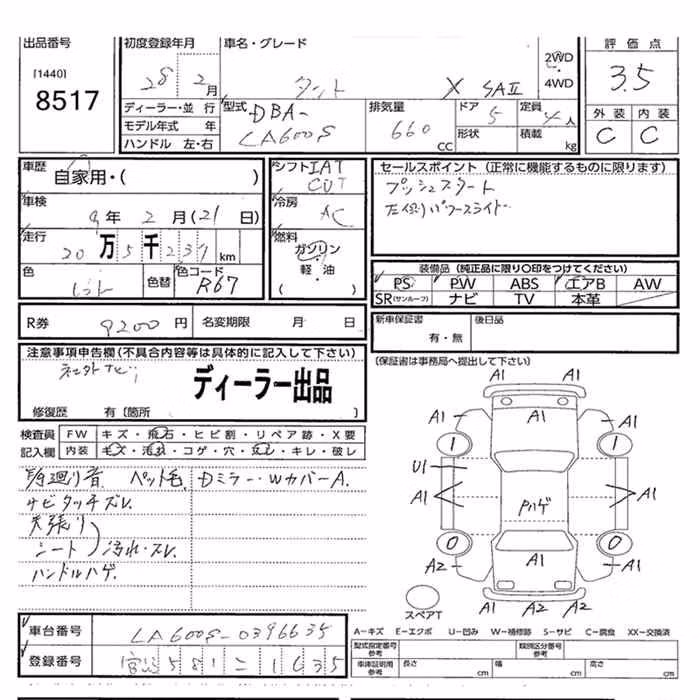 出品番号
[1440]
8517
初度登録年月
28年 2月
車名・グレード
タント X SAⅡ
2WD
4WD
評価点
3.5
外装 内装
C C
ディーラー・並行
モデル年式 年
ハンドル 左・右
型式
DBA-
LA600S
排気量
660
CC
ドア
5
形状
定員
4人
積載
kg
車歴
自家用・( )
車検
9年 2月(21日)
走行
20万5千231km
色
色替
色コード
R67
シフト IAT
CVT
冷房
AC
燃料
ガソリン
・
軽油
( )
セールスポイント(正常に機能するものに限ります)
プッシュスタート
左側パワースライド
装備品(純正品に限り○印をつけてください)
PS PW ABS エアB AW
SR(サンルーフ) ナビ TV 本革
R券 9200円
名変期限 月 日
新車保証書
有・無
後日品
(保証書は事務局へ提出して下さい)
注意事項申告欄(不具合内容等は具体的に記入して下さい)
社外ナビ
ディーラー出品
修復歴 有〔箇所 〕
検査員 FW キズ・飛石・ヒビ割・リペア跡・X要
記入欄 内装 キズ・汚れ・コゲ・穴・スレ・キレ・破レ
廻り音 ペット毛 Dミラー・WカバーA.
ナビタッチズレ.
天張り
シート 汚れ・スレ.
ハンドルハゲ.
A1
A1 A1 A1
1 1
U1
A1 A1
Pハゲ
0 0
A2 A1 A1
A1 A2 A1
スペアT
車台番号 LA600S-0396635
登録番号 581 1635
A-キズ E-エクボ U-凹み W-補修跡 S-サビ C-腐食 XX-交換済
型式指定番号
参考
類別区分番号
参考
車庫証明用
参考
長さ cm 幅 cm 高さ cm